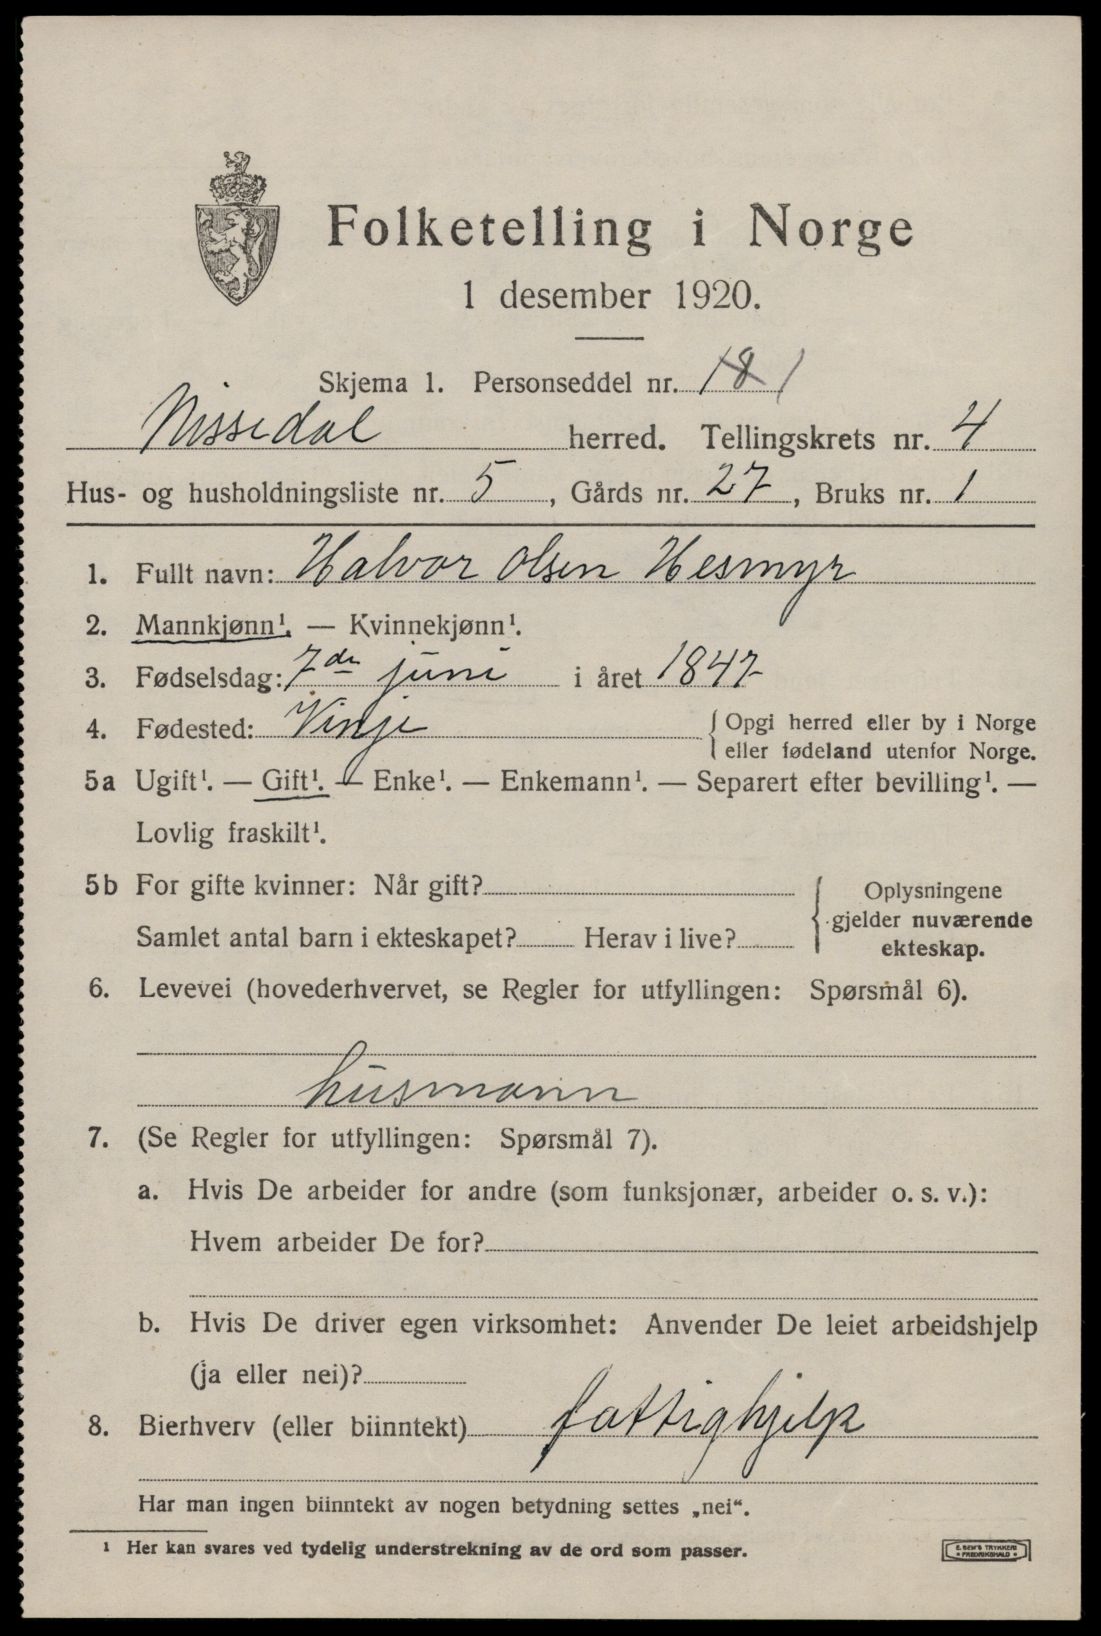 Folketelling i Norge
1 desember 1920.
Skjema 1. Personseddel nr. 18 1
Nissedal herred. Tellingskrets nr. 4
Hus- og husholdningsliste nr. 5, Gårds nr. 27, Bruks nr. 1
1. Fullt navn: Halvor Olsen Hesmyr
2. Mannkjønn¹. — Kvinnekjønn¹.
3. Fødselsdag: 7de juni i året 1847
4. Fødested: Vinje { Opgi herred eller by i Norge
eller fødeland utenfor Norge.
5a Ugift¹. — Gift¹. — Enke¹. — Enkemann¹. — Separert efter bevilling¹. —
Lovlig fraskilt¹.
5b For gifte kvinner: Når gift?
Samlet antal barn i ekteskapet? Herav i live?
{ Oplysningene
gjelder nuværende
ekteskap.
6. Levevei (hovederhvervet, se Regler for utfyllingen: Spørsmål 6).
husmann
7. (Se Regler for utfyllingen: Spørsmål 7).
a. Hvis De arbeider for andre (som funksjonær, arbeider o. s. v.):
Hvem arbeider De for?
b. Hvis De driver egen virksomhet: Anvender De leiet arbeidshjelp
(ja eller nei)?
8. Bierhverv (eller biinntekt) fattighjelp
Har man ingen biinntekt av nogen betydning settes „nei“.
¹ Her kan svares ved tydelig understrekning av de ord som passer.
E. SEM'S TRYKKERI
• FREDRIKSHALD •